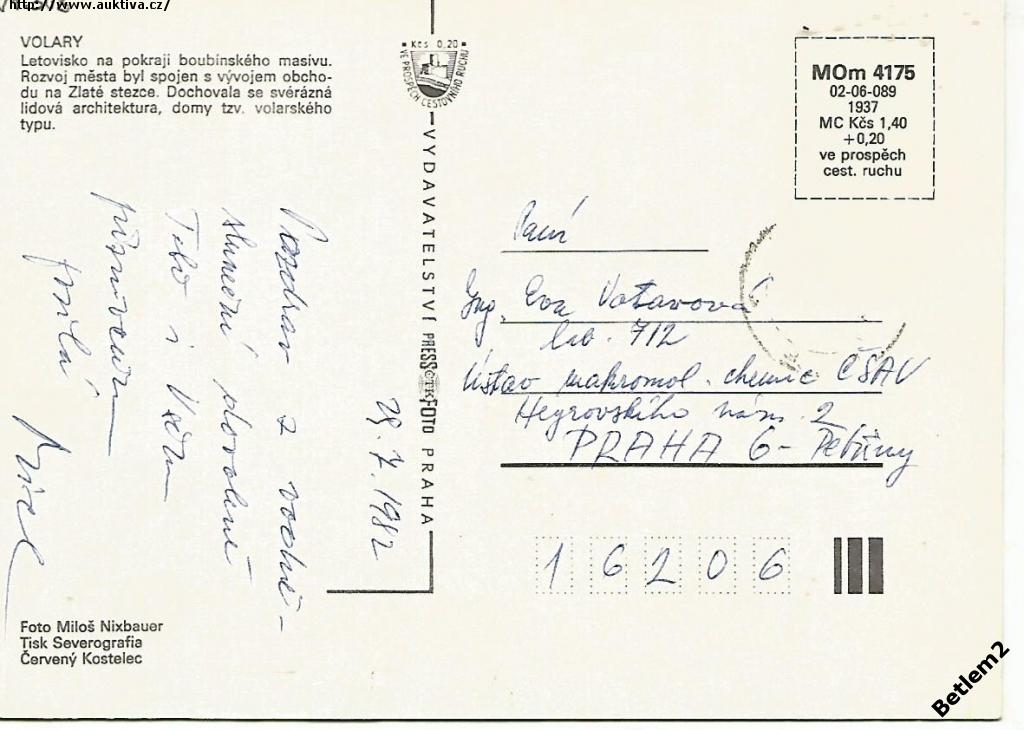 http://www.auktiva.cz/
VOLARY
Letovisko na pokraji boubínského masívu.
Rozvoj města byl spojen s vývojem obcho-
du na Zlaté stezce. Dochovala se svérázná
lidová architektura, domy tzv. volarského
typu.
Kčs 0,20
VE PROSPĚCH CESTOVNÍHO RUCHU
VYDAVATELSTVÍ PRESSFOTO PRAHA
ČTK
MOm 4175
02-06-089
1937
MC Kčs 1,40
+0,20
ve prospěch
cest. ruchu
29.7.1982
Pozdrav z vodně-
sluneční dovolené
Tobě i Vašim
Paní
Ing. Eva Votavová
lab. 712
Ústav makromol. chemie ČSAV
Heyrovského nám. 2
PRAHA 6 - Petřiny
16206
Foto Miloš Nixbauer
Tisk Severografia
Červený Kostelec
Betlem2